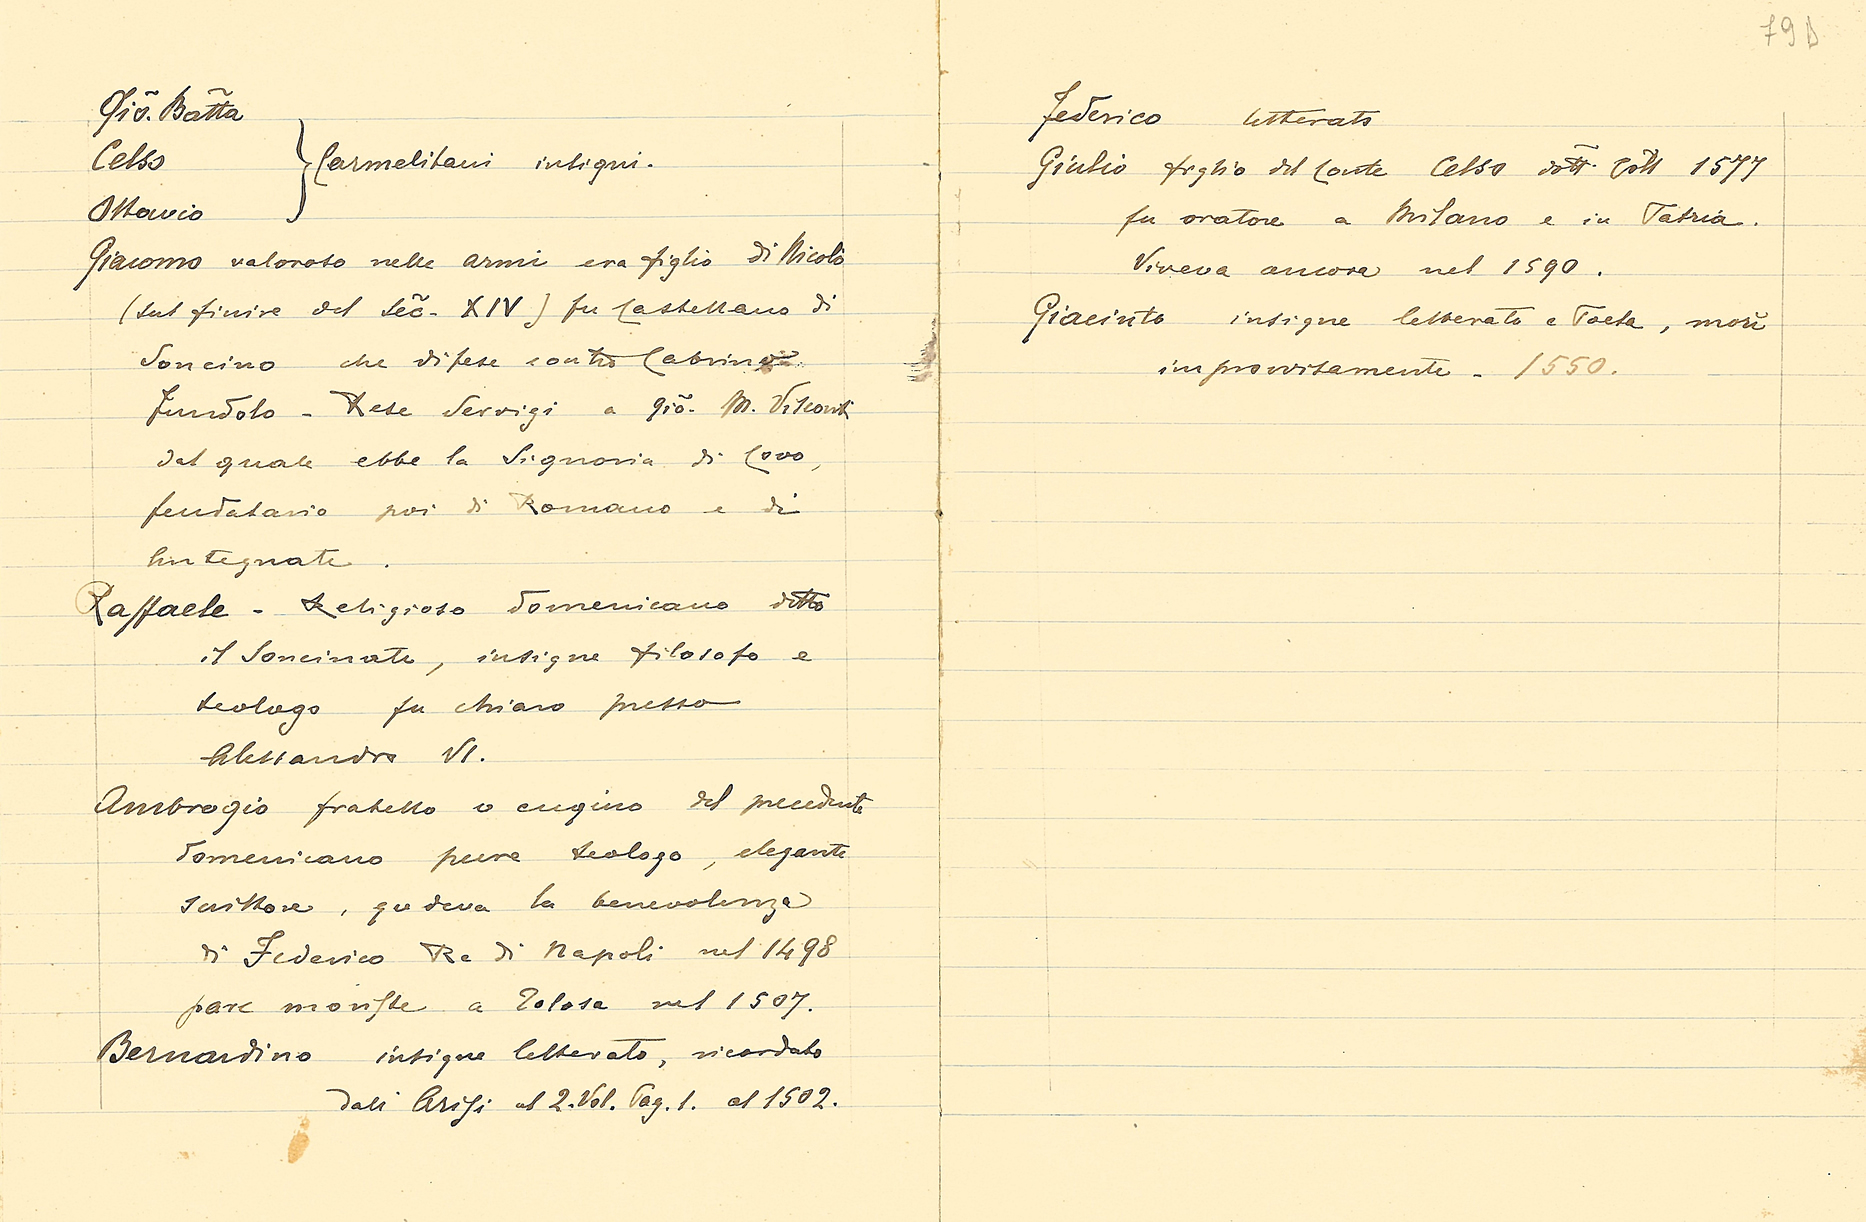 Giõ. Batta
Celso
Carmelitani insigni.
Ottavio
Giacomo valoroso nelle armi era figlio di Nicolò
(sul finire del Sec̃. XIV) fu Castellano di
Soncino che difese contro Cabrino
Fundolo - Rese Servigi a Giõ. M. Visconti
dal quale ebbe la Signoria di Covo,
feudatario poi di Romano e di
Antegnate.
Raffaele - Religioso domenicano detto
il Soncinate, insigne filosofo e
teologo fu chiaro presso
Alessandro VI.
Ambrogio fratello o cugino del precedente
domenicano pure teologo, elegante
scrittore, godeva la benevolenza
di Federico Re di Napoli nel 1498
pare morisse a Tolosa nel 1507.
Bernardino insigne letterato, ricordato
dall Arisi al 2. Vol. Pag. 1. al 1502.
79 D
Federico letterato
Giulio figlio del Conte Celso dott. Coll 1577
fu oratore a Milano e in Patria.
Viveva ancora nel 1590.
Giacinto insigne letterato e Poeta, morì
improvvisamente - 1550.